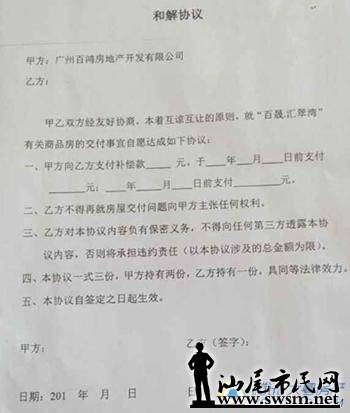 和解协议
甲方：广州百鸿房地产开发有限公司
乙方：
甲乙双方经友好协商，本着互谅互让的原则，就“百晟.汇翠湾”
有关商品房的交付事宜自愿达成如下协议：
一、甲方向乙方支付补偿款_____元，于____年___月___日前支付
______元；____年___月____日前支付______元。
二、乙方不得再就房屋交付问题向甲方主张任何权利。
三、乙方对本协议内容负有保密义务，不得向任何第三方透露本协
议内容，否则将承担违约责任（以本协议涉及的总金额为限）。
四、本协议一式三份，甲方持有两份，乙方持有一份，具同等法律效力。
五、本协议自签定之日起生效。
甲方：
乙方（签字）：
日期：201 年 月 日
日
汕尾市民网
www.swsm.net